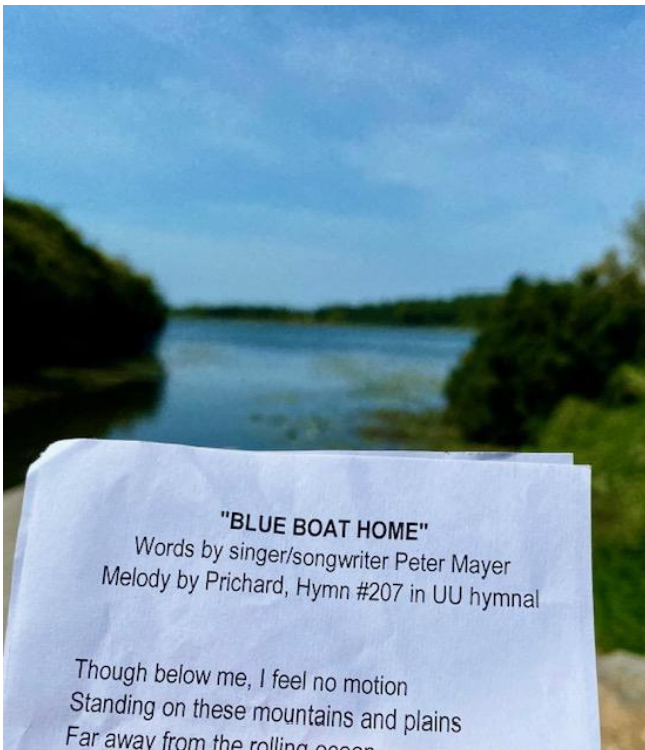 "BLUE BOAT HOME"
Words by singer/songwriter Peter Mayer
Melody by Prichard, Hymn #207 in UU hymnal
Though below me, I feel no motion
Standing on these mountains and plains
Far away from the rolling ocean